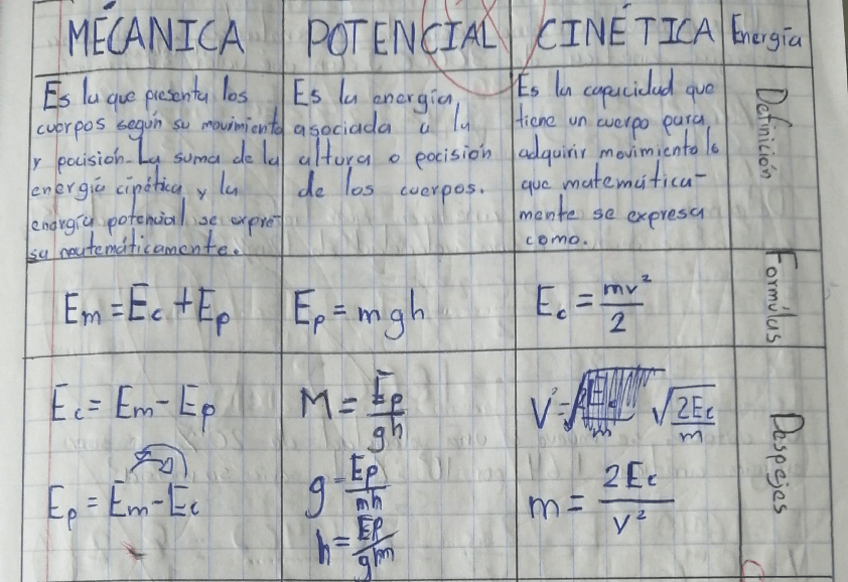 MECANICA
POTENCIAL
CINÉTICA
Energía
Es la que presenta los
cuerpos según su movimiento
y pocisión. La suma de la
energía cinética y la
energía potencial se expre-
sa matemáticamente.
Es la energía
asociada a la
altura o pocisión
de los cuerpos.
Es la capacidad que
tiene un cuerpo para
adquirir movimiento lo
que matemática-
mente se expresa
como.
Definición
Em = Ec + Ep
Ep = mgh
Ec = mv²/2
Formúlas
Ec = Em - Ep
Ep = Em - Ec
M = Ep/gh
g = Ep/mh
h = Ep/gm
V = √2Ec/m
m = 2Ec/v²
Despejes